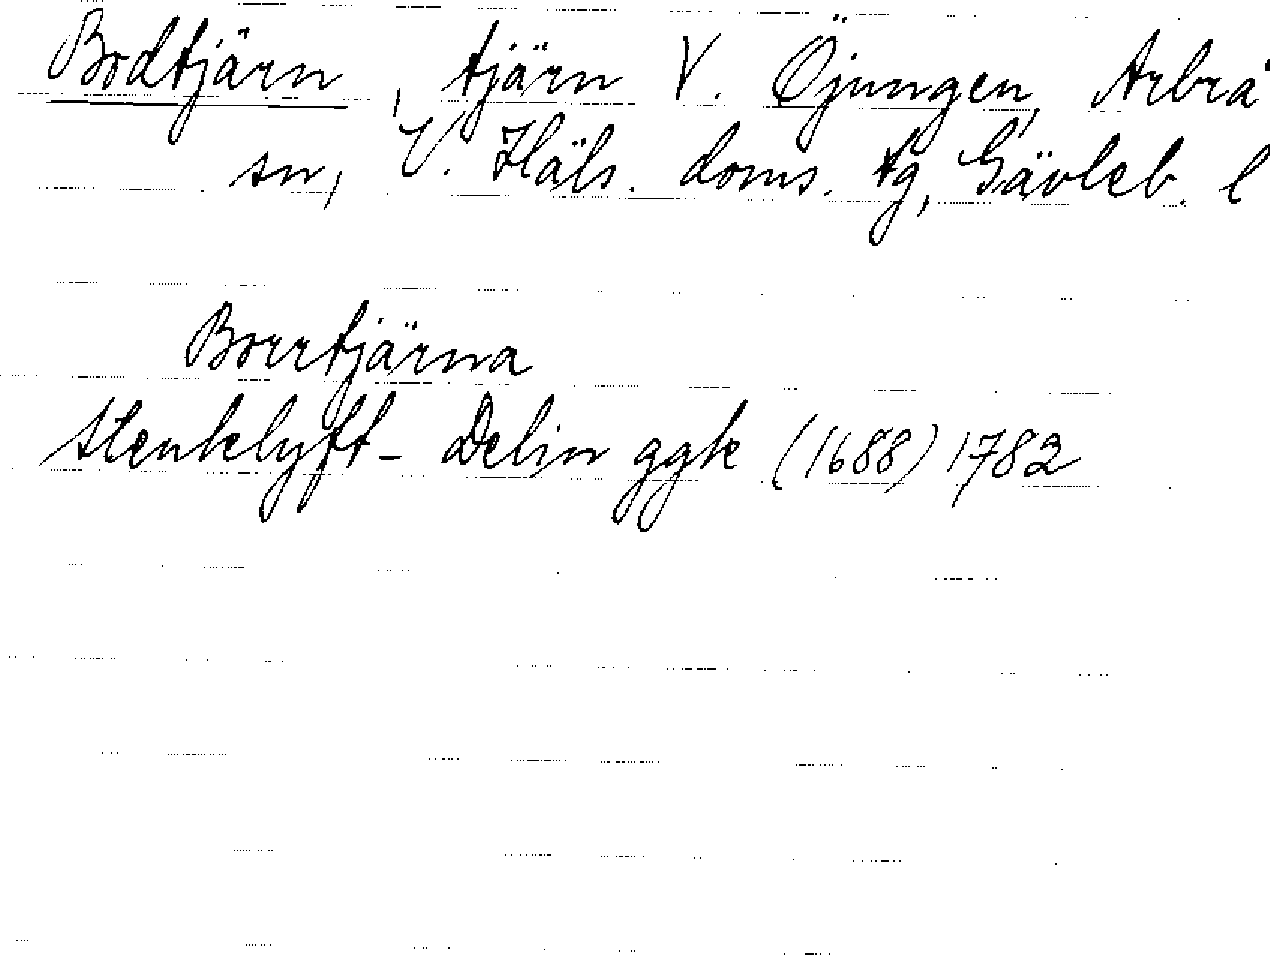 Bodtjärn, tjärn V. Öjungen, Arbrå
sn, V. Häls. doms. tg, Gävleb. l
Borrtjärna
Stenklyft- Delin ggk (1688) 1782